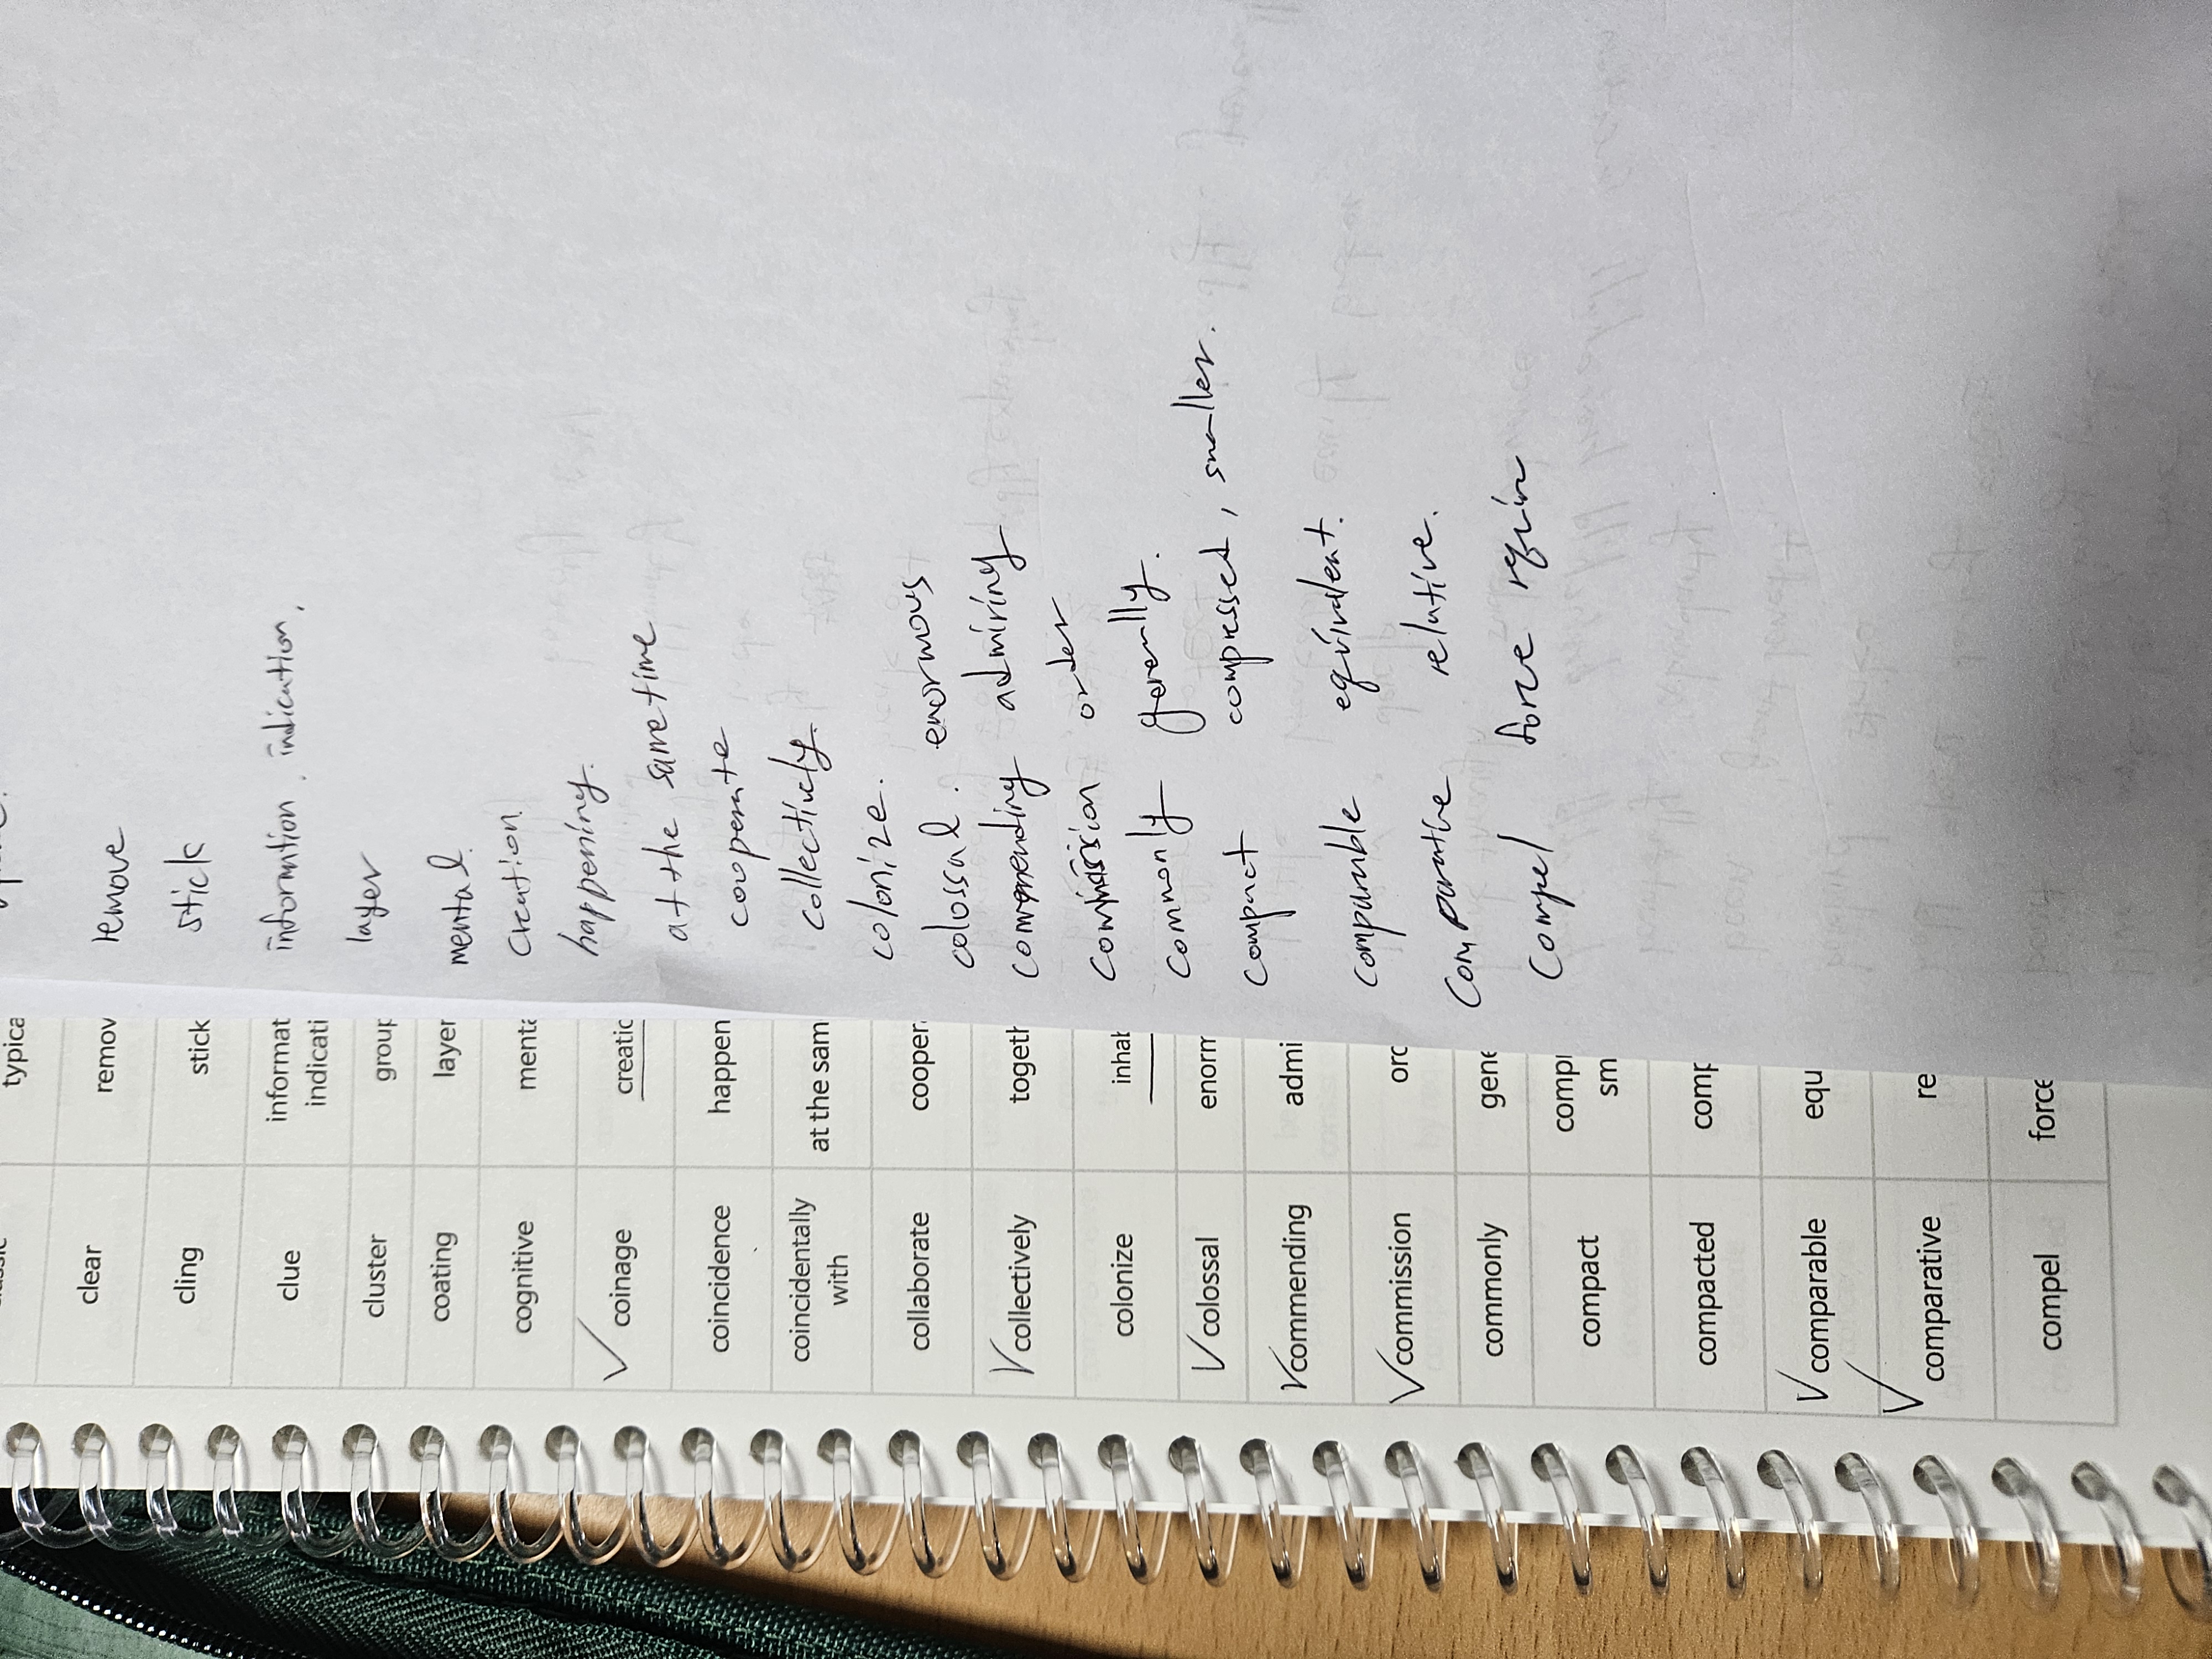 typica
clear remov
cling stick
clue informat
indicati
cluster group
coating layer
cognitive menta
coinage creatic
coincidence happen
coincidentally at the sam
with
collaborate cooper
collectively togeth
colonize inhal
colossal enorm
commending admi
commission orc
commonly gene
compact compl
sm
compacted comp
comparable equ
comparative re
compel force
remove
stick
information, indication,
layer
mental.
creation
happening.
at the same time
cooperate
collectively.
colonize.
colossal. enormous
commending admiring
commission order
commonly generally.
compact compressed, smaller.
comparable equivalent.
comparative relative.
compel force